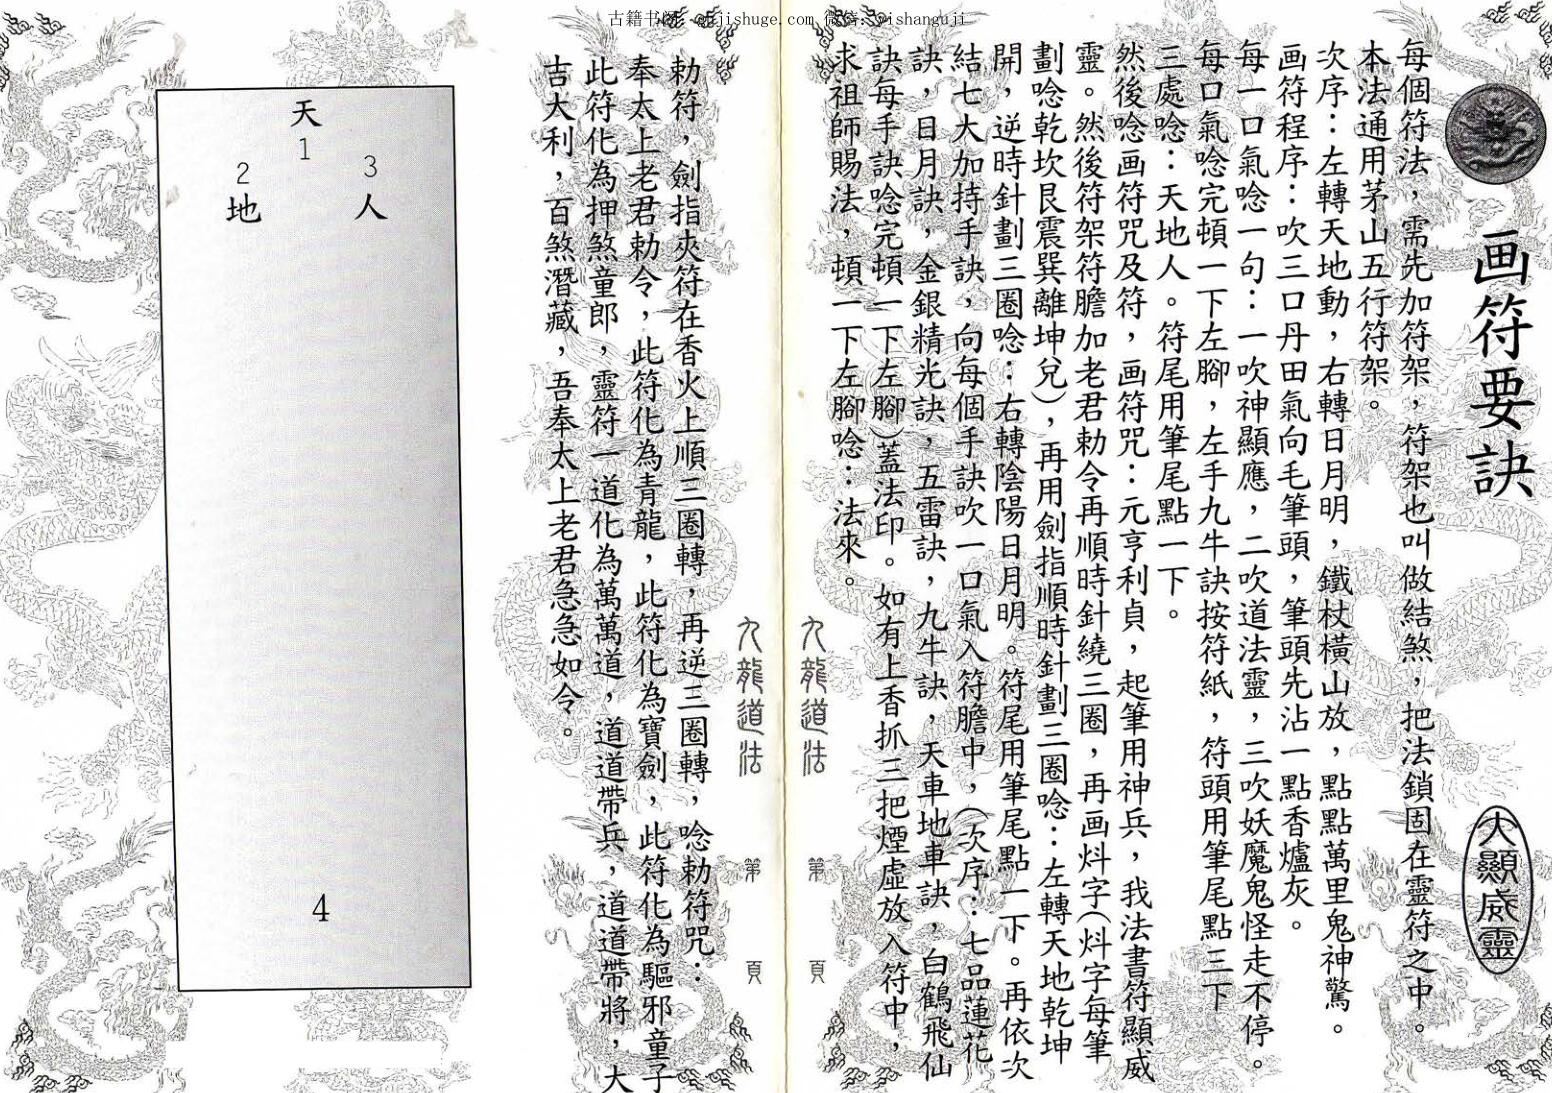 古籍书阁：gujishuge.com 微信：yishanguji
画符要訣
大顯威靈
每個符法，需先加符架，符架也叫做結煞，把法鎖固在靈符之中。
本法通用茅山五行符架。
次序：左轉天地動，右轉日月明，鐵杖橫山放，點點萬里鬼神驚。
画符程序：吹三口丹田氣向毛筆頭，筆頭先沾一點香爐灰。
每一口氣唸一句：一吹神顯應，二吹道法靈，三吹妖魔鬼怪走不停。
每口氣唸完頓一下左腳，左手九牛訣按符紙，符頭用筆尾點三下
三處唸：天地人。符尾用筆尾點一下。
然後唸画符咒及符，画符咒：元亨利貞，起筆用神兵，我法書符顯威
靈。然後符架符膽加老君勅令再順時針繞三圈，再画炓字（炓字每筆
劃唸乾坎艮震巽離坤兌），再用劍指順時針劃三圈唸：左轉天地乾坤
開，逆時針劃三圈唸：右轉陰陽日月明。符尾用筆尾點一下。再依次
結七大加持手訣，向每個手訣吹一口氣入符膽中，（次序：七品蓮花
訣，日月訣，金銀精光訣，五雷訣，九牛訣，天車地車訣，白鶴飛仙
訣每手訣唸完頓一下左腳）蓋法印。如有上香抓三把煙虛放入符中，
求祖師賜法，頓一下左腳唸：法來。
九龍道法
第 頁
九龍道法
第 頁
勅符，劍指夾符在香火上順三圈轉，再逆三圈轉，唸勅符咒：
奉太上老君勅令，此符化為青龍，此符化為寶劍，此符化為驅邪童子
此符化為押煞童郎，靈符一道化為萬萬道，道道帶兵，道道帶將，大
吉大利，百煞潛藏，吾奉太上老君急急如令。
天
1
2
地
3
人
4